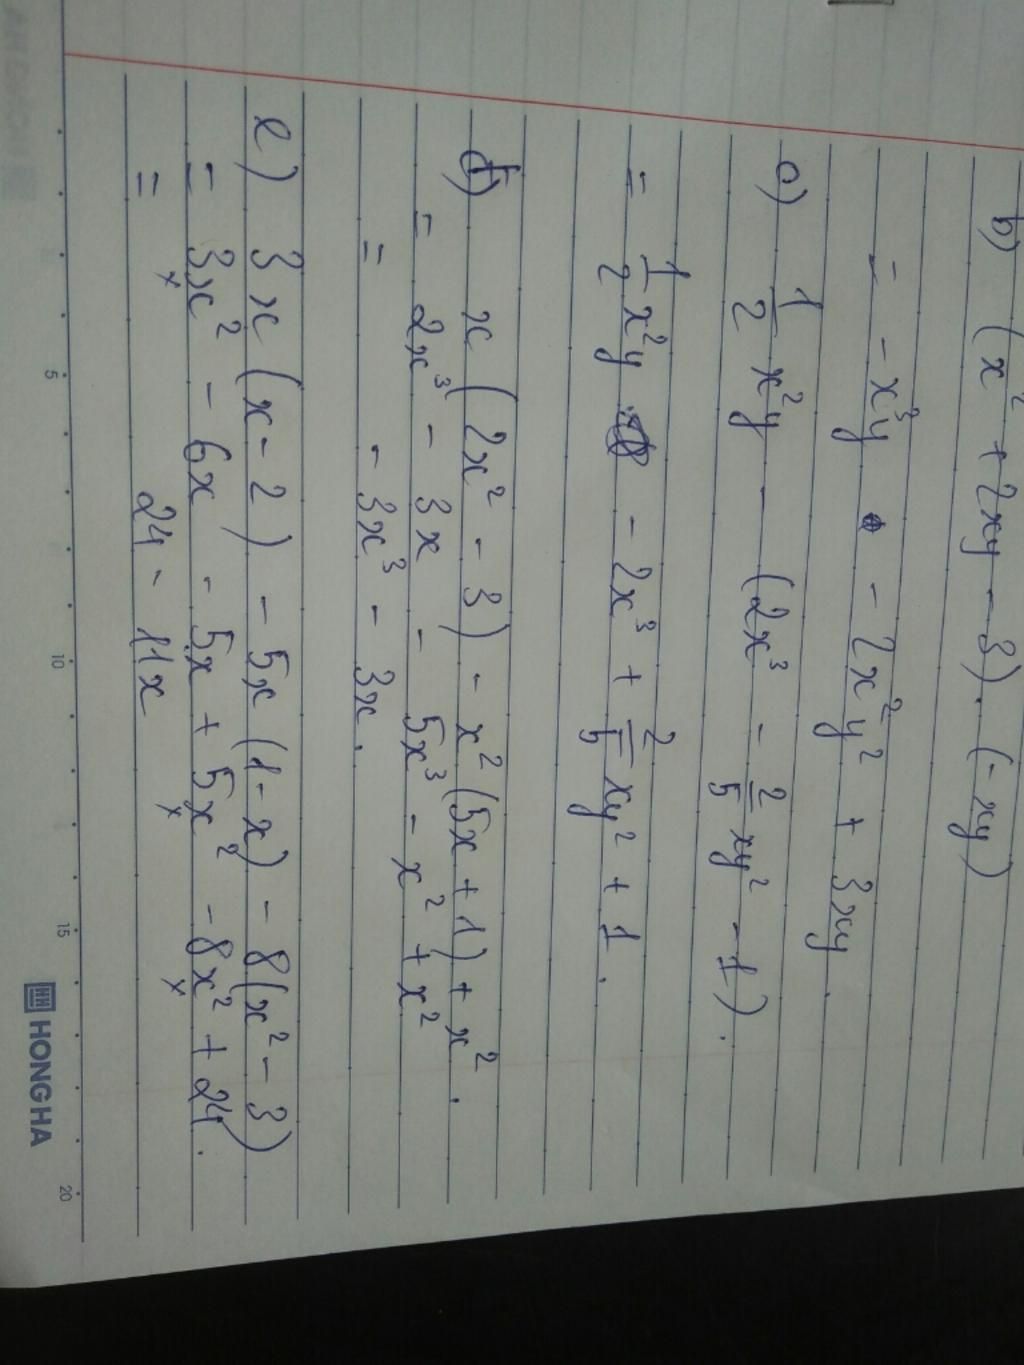 b) (x² + 2xy - 3). (-xy)
= -x³y - 2x²y² + 3xy.
c) 1/2 x²y - (2x³ - 2/5 xy² - 1).
= 1/2 x²y - 2x³ + 2/5 xy² + 1.
d) x (2x² - 3) - x² (5x + 1) + x².
= 2x³ - 3x - 5x³ - x² + x²
= - 3x³ - 3x.
e) 3x (x - 2) - 5x (1 - x) - 8 (x² - 3)
= 3x² - 6x - 5x + 5x² - 8x² + 24.
= 24 - 11x
5 10 15 20
HONG HA